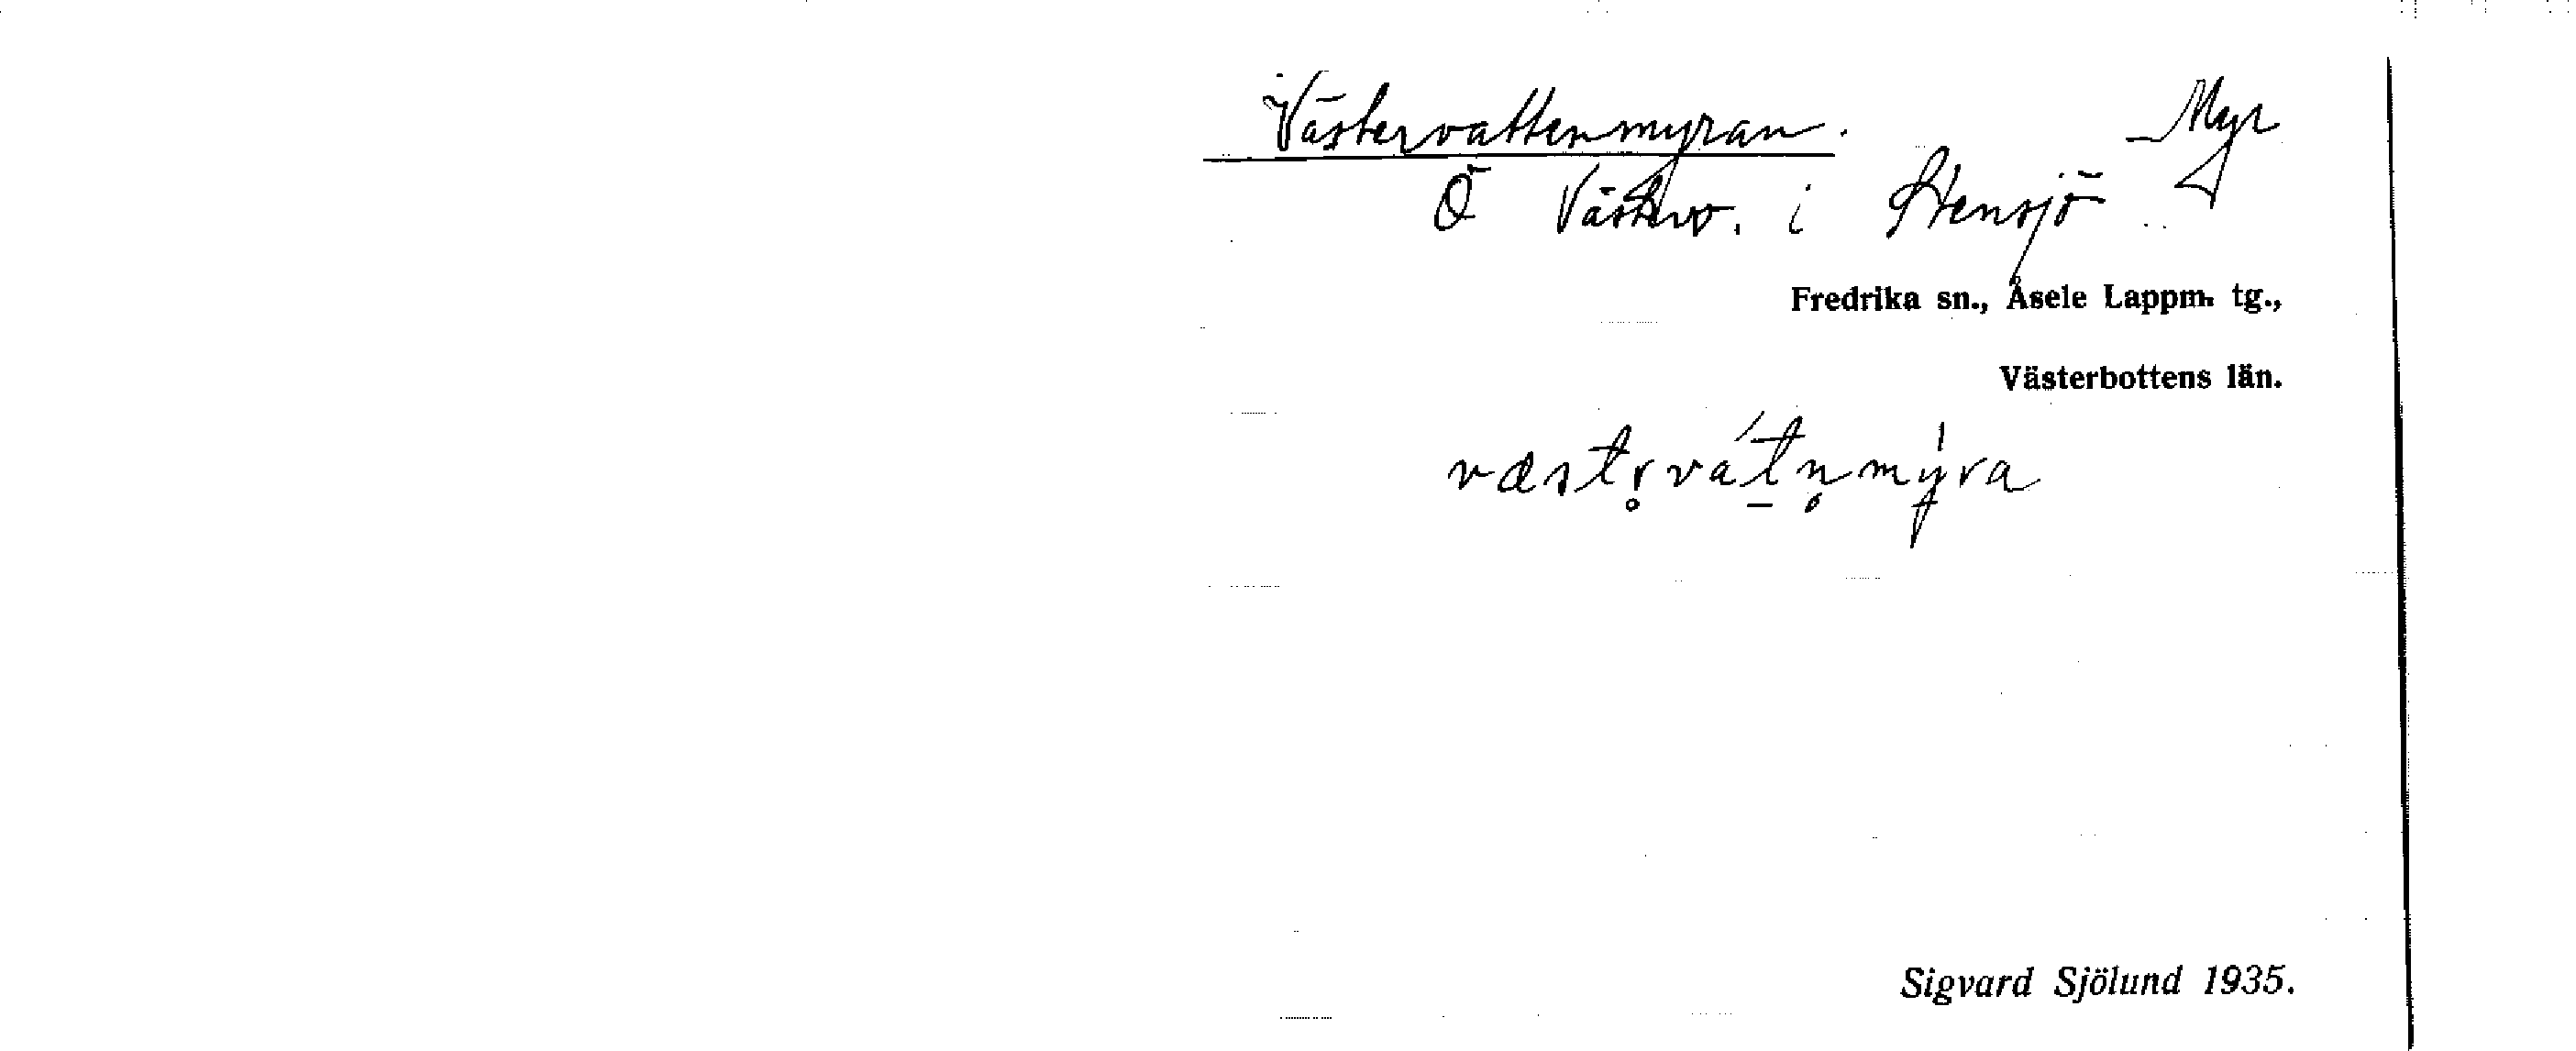 Västervattenmyran. Myr
Ö Västerv. i Stensjö
Fredrika sn., Åsele Lappm. tg.,
Västerbottens län.
væstr̥vátn̥mýra
Sigvard Sjölund 1935.